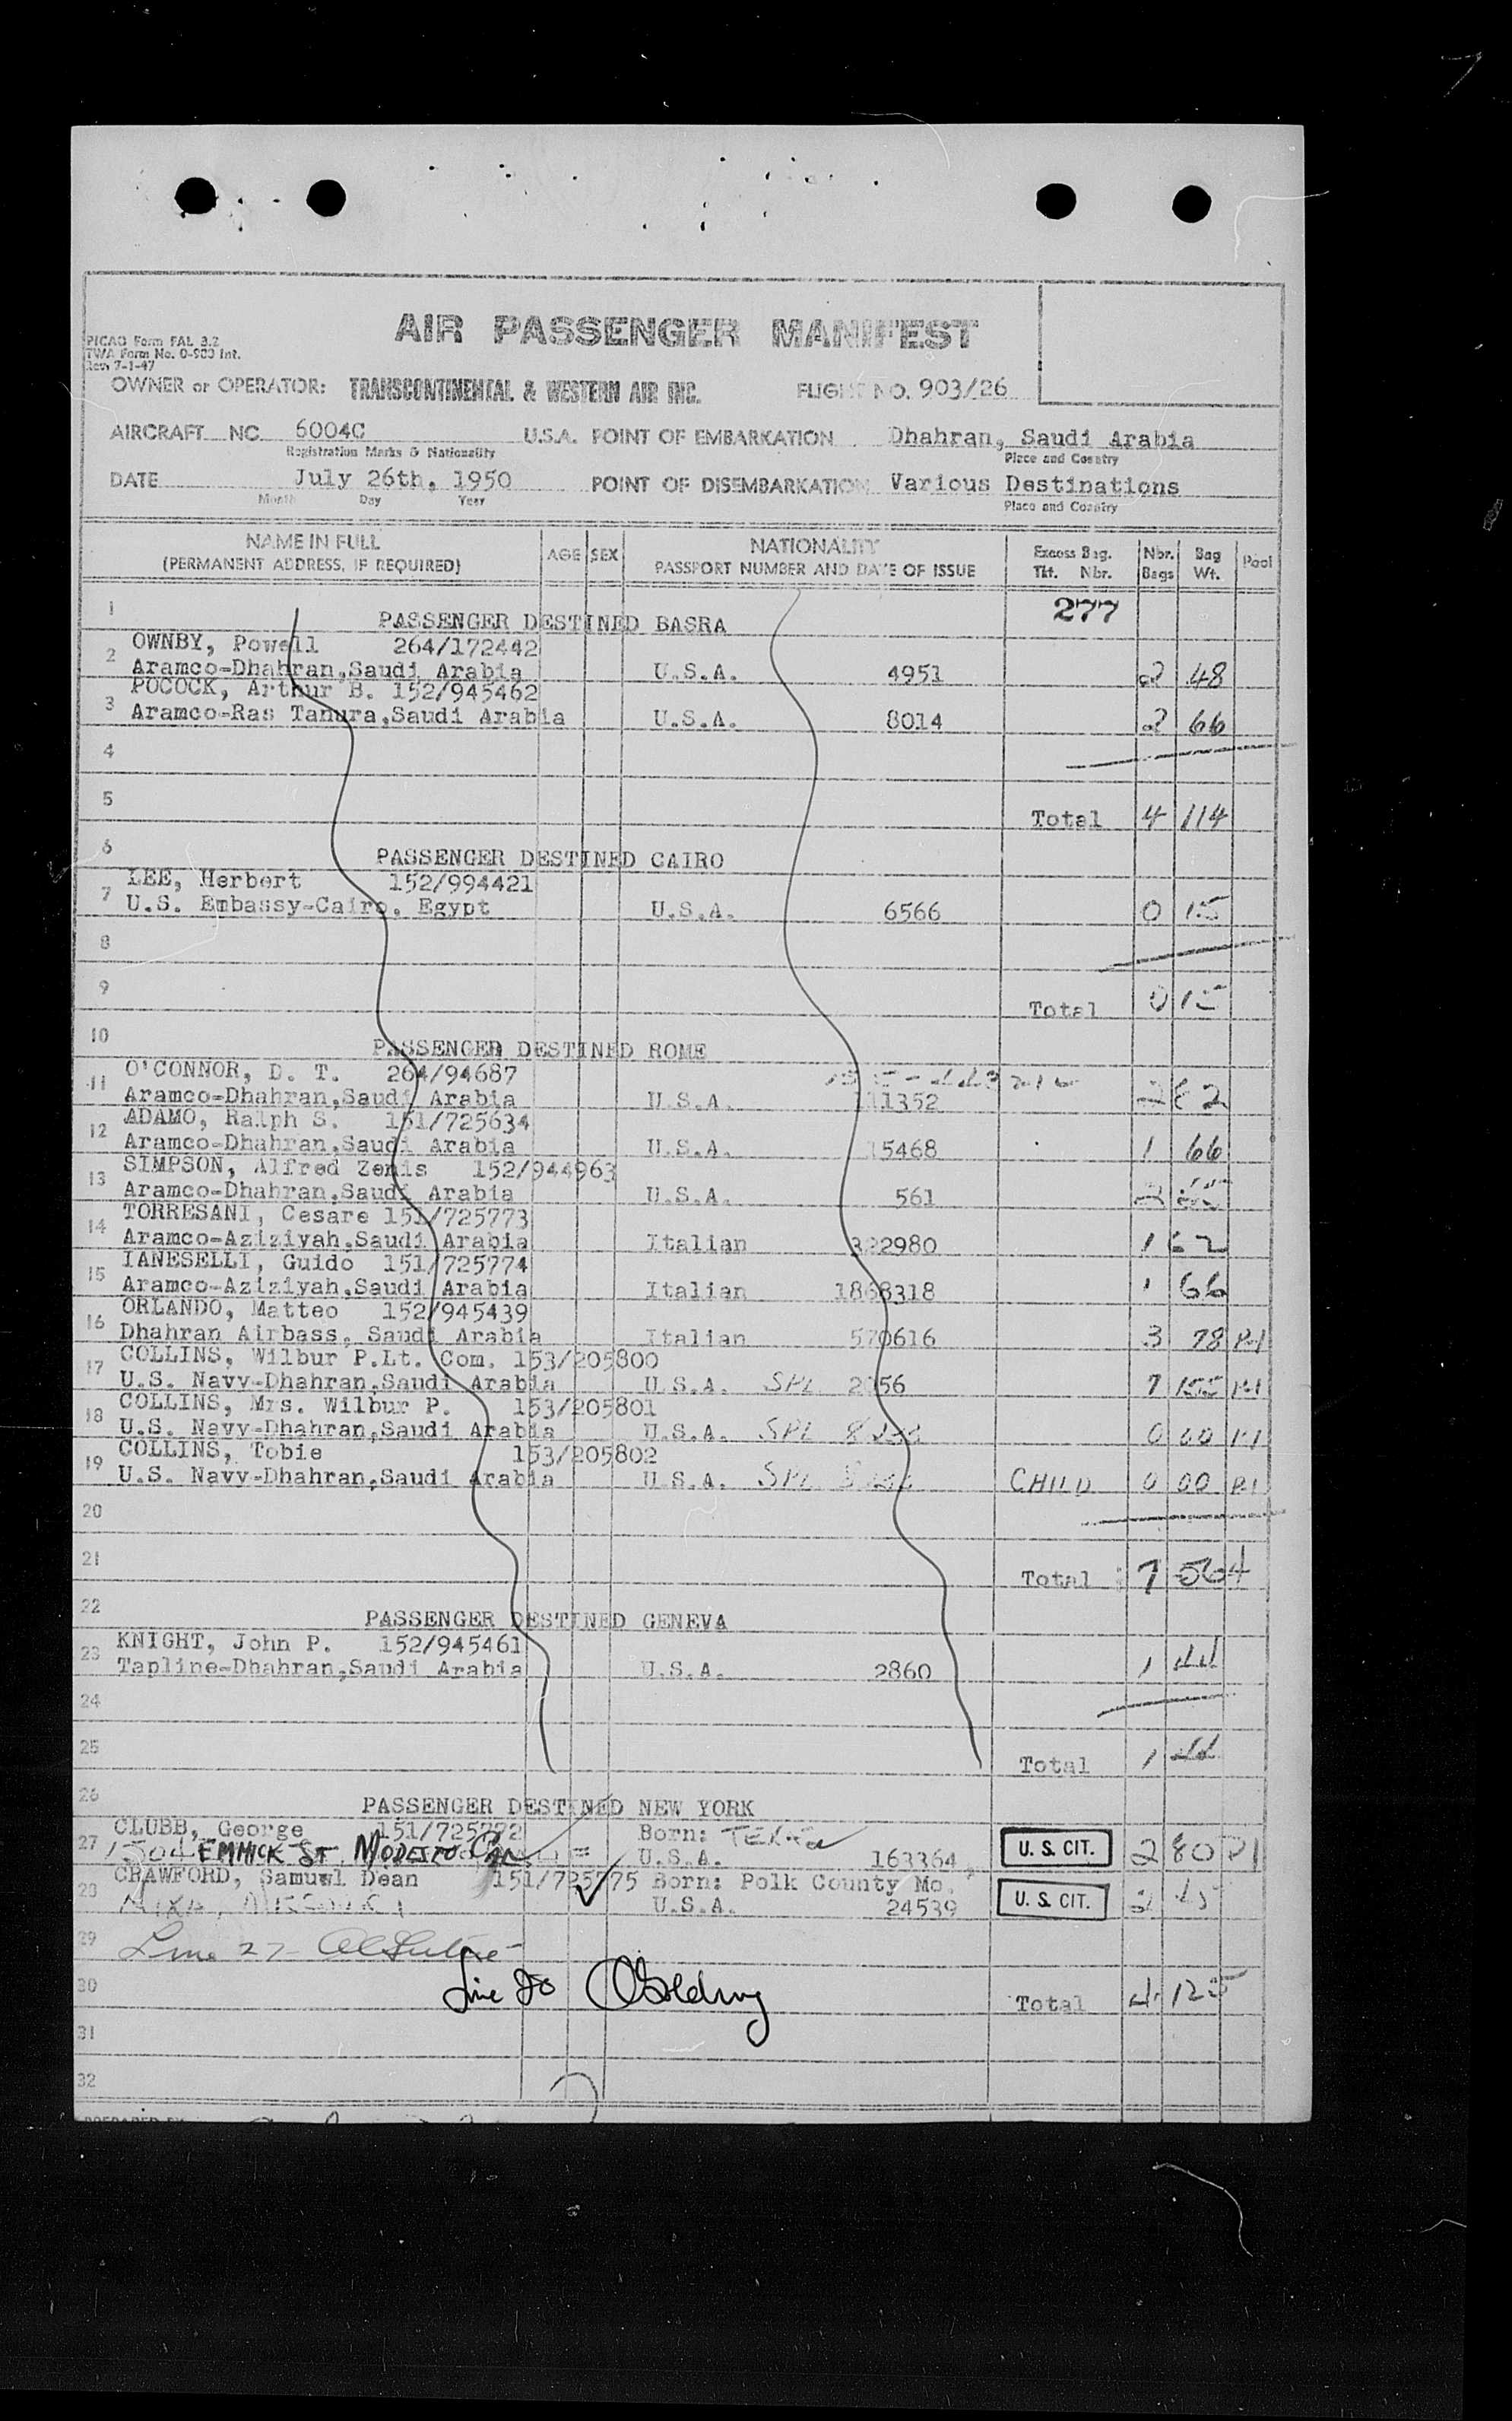 AIR PASSENGER MANIFEST
PICAO Form FAL 3.2
TWA Form No. 0-900 Int.
Rev. 7-1-47
OWNER or OPERATOR: TRANSCONTINENTAL & WESTERN AIR INC. FLIGHT NO. 903/26
AIRCRAFT NO. 6004C U.S.A. POINT OF EMBARKATION Dhahran, Saudi Arabia
Registration Marks & Nationality Place and Country
DATE July 26th, 1950 POINT OF DISEMBARKATION Various Destinations
Month Day Year Place and Country
NAME IN FULL AGE SEX NATIONALITY Excess Bag. Nbr. Bag Pool
(PERMANENT ADDRESS, IF REQUIRED) PASSPORT NUMBER AND DATE OF ISSUE Tkt. Nbr. Bags Wt.
1 PASSENGER DESTINED BASRA 277
OWNBY, Powell 264/172442
2 Aramco-Dhahran,Saudi Arabia U.S.A. 4951 2 48
POCOCK, Arthur B. 152/945462
3 Aramco-Ras Tanura,Saudi Arabia U.S.A. 8014 2 66
4
5 Total 4 114
6 PASSENGER DESTINED CAIRO
LEE, Herbert 152/994421
7 U.S. Embassy-Cairo, Egypt U.S.A. 6566 0 15
8
9 Total 0 15
10 PASSENGER DESTINED ROME
O'CONNOR, D. T. 264/94687
11 Aramco-Dhahran,Saudi Arabia U.S.A. 11352 2 82
ADAMO, Ralph S. 151/725634
12 Aramco-Dhahran,Saudi Arabia U.S.A. 15468 1 66
SIMPSON, Alfred Zenis 152/944963
13 Aramco-Dhahran,Saudi Arabia U.S.A. 561 2
TORRESANI, Cesare 151/725773
14 Aramco-Aziziyah,Saudi Arabia Italian 322980 1 62
IANESELLI, Guido 151/725774
15 Aramco-Aziziyah,Saudi Arabia Italian 1868318 1 66
ORLANDO, Matteo 152/945439
16 Dhahran Airbass, Saudi Arabia Italian 570616 3 78 P-1
COLLINS, Wilbur P.Lt. Com. 153/205800
17 U.S. Navy-Dhahran,Saudi Arabia U.S.A. SPL 2056 7 155 P-1
COLLINS, Mrs. Wilbur P. 153/205801
18 U.S. Navy-Dhahran,Saudi Arabia U.S.A. SPL 0 00 P-1
COLLINS, Tobie 153/205802
19 U.S. Navy-Dhahran,Saudi Arabia U.S.A. SPL CHILD 0 00 P-1
20
21 Total 564
22 PASSENGER DESTINED GENEVA
KNIGHT, John P. 152/945461
23 Tapline-Dhahran,Saudi Arabia U.S.A. 2860 1 44
24
25 Total 1 44
26 PASSENGER DESTINED NEW YORK
CLUBB, George 151/725772 Born: TEXAS
27 1504 EMMICK ST MODESTO Cal U.S.A. 163364 U. S. CIT. 2 80 P1
CRAWFORD, Samuwl Dean 151/725775 Born: Polk County Mo.
28 NIXA, MISSOURI U.S.A. 24539 U. S. CIT. 2 45
29 Line 27
30 Line 28 Total 4 125
31
32